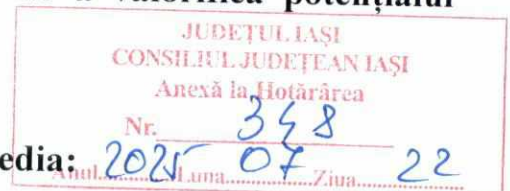 a valorifica potențialul
JUDEȚUL IAȘI
CONSILIUL JUDEȚEAN IAȘI
Anexă la Hotărârea
Nr. 348
edia: Anul 2025 Luna 07 Ziua 22